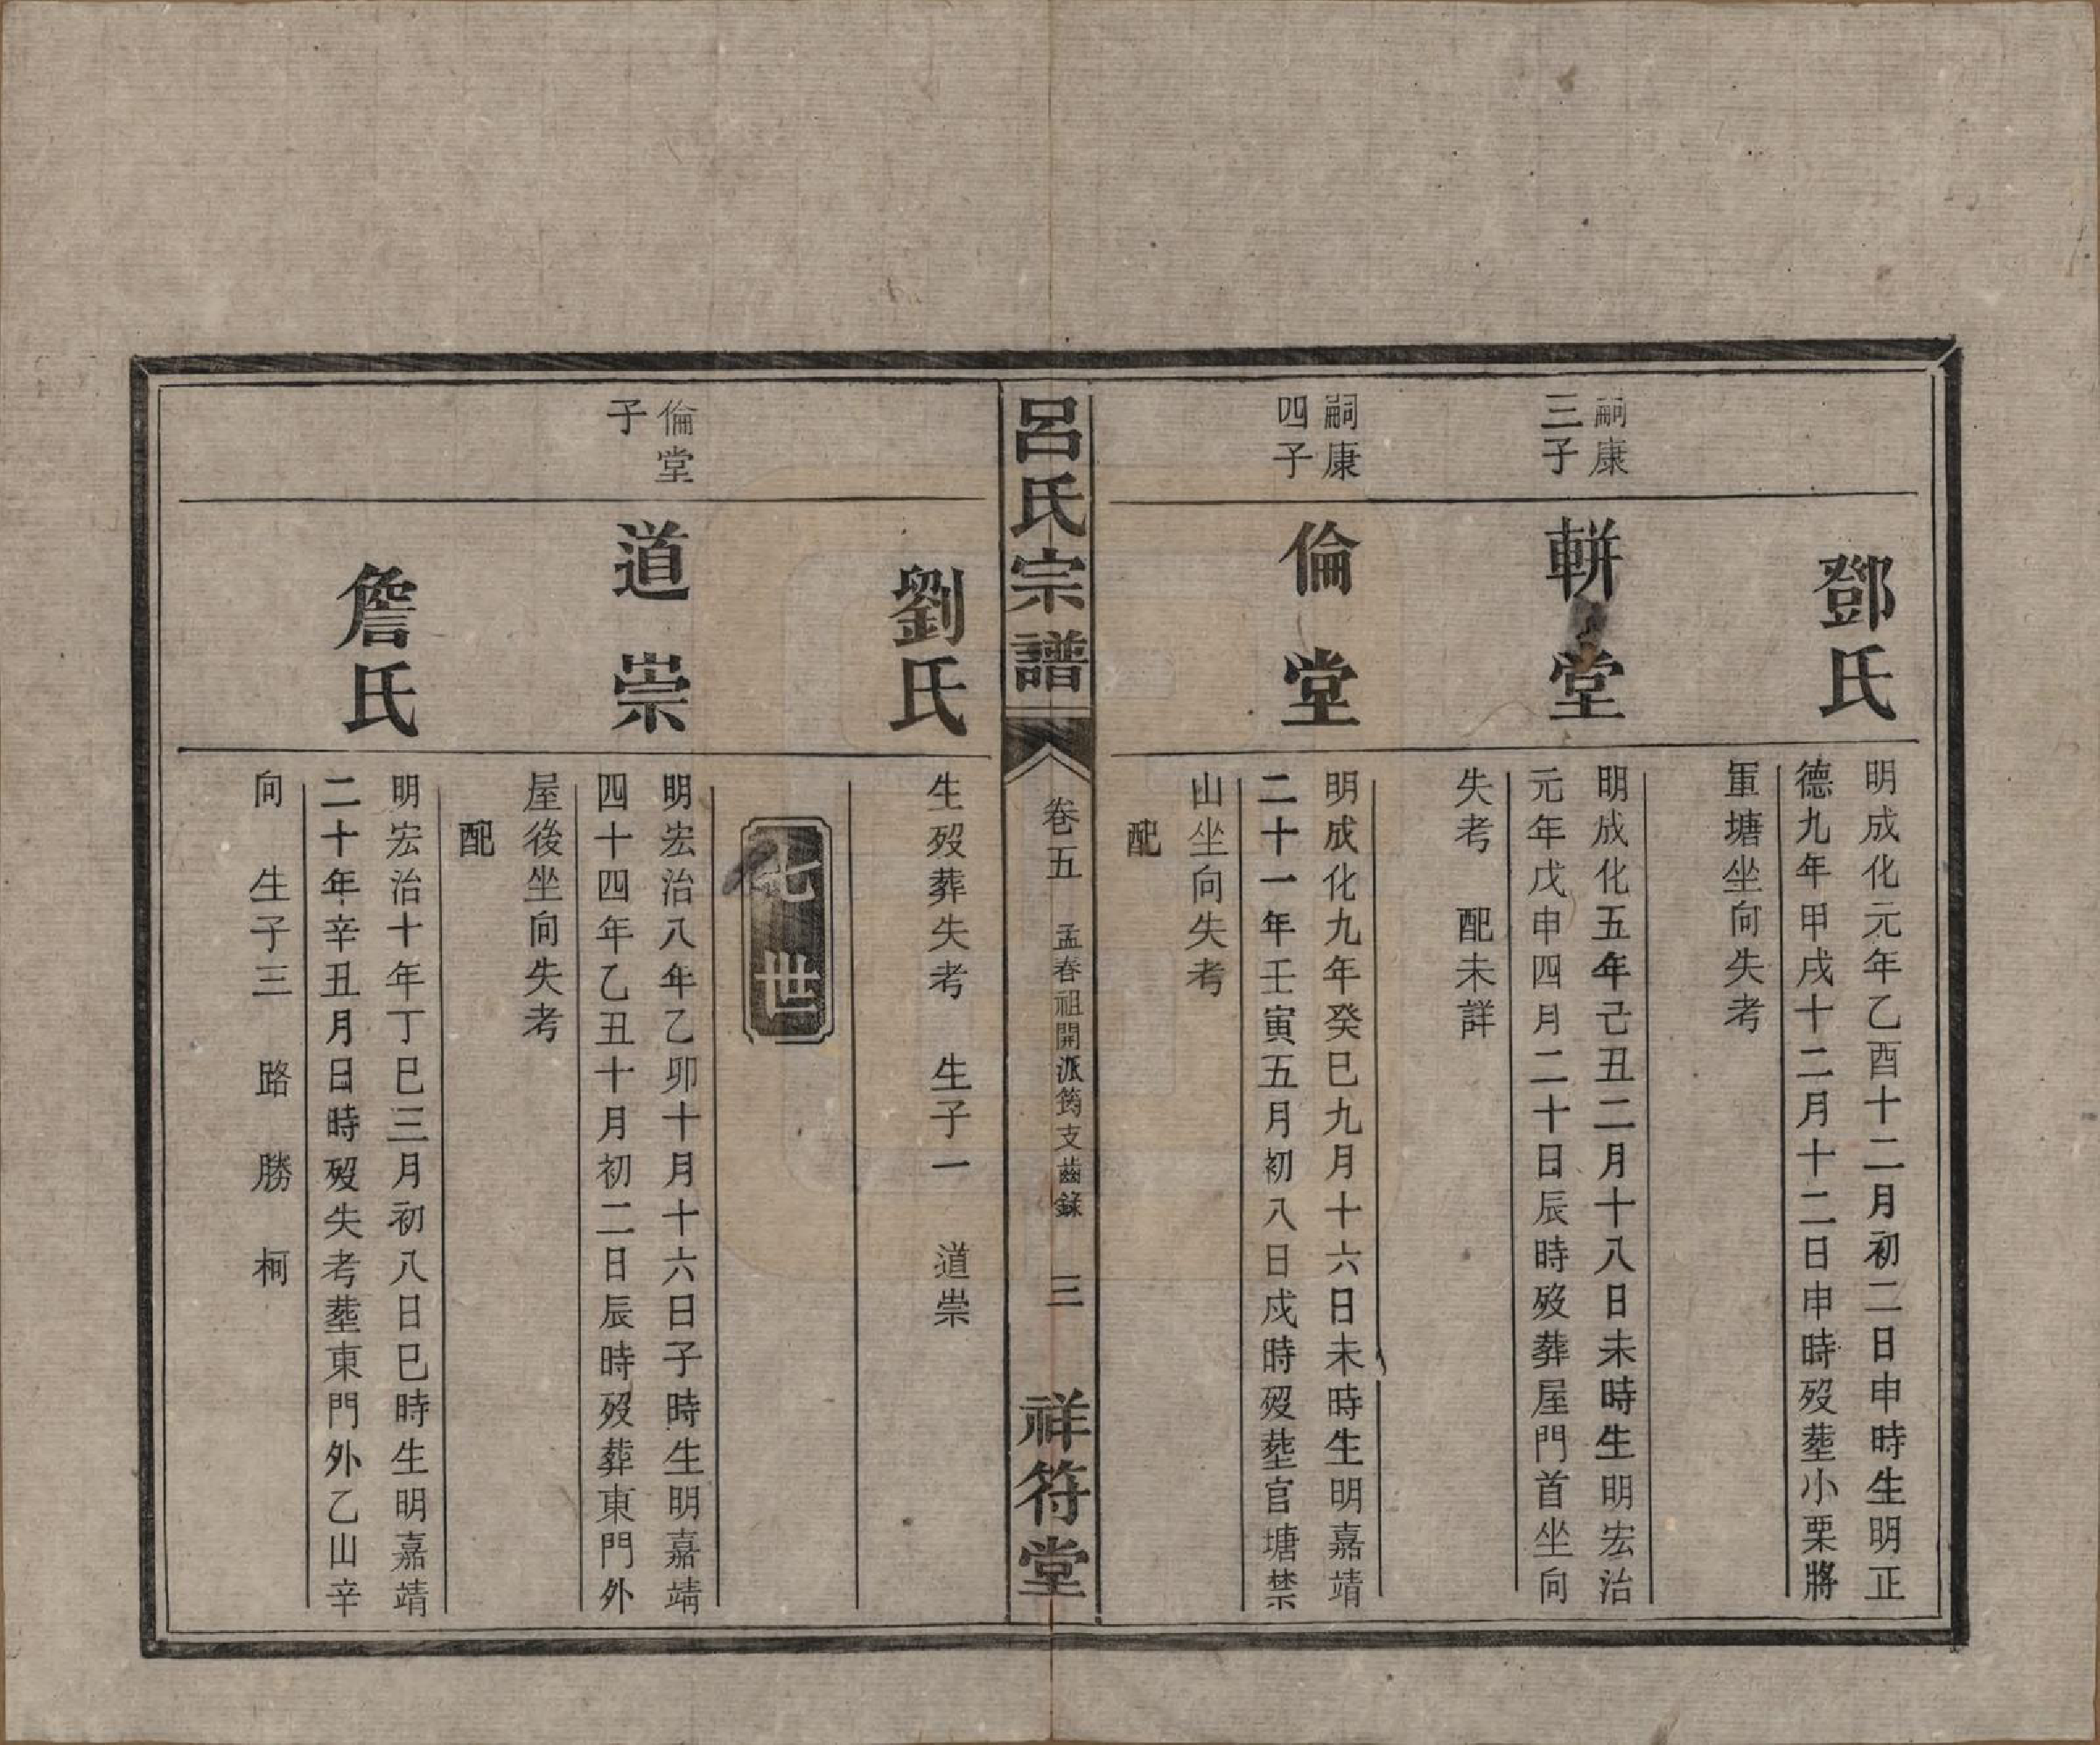 鄧氏
明成化元年乙酉十二月初二日申時生明正
德九年甲戌十二月十二日申時歿塟小栗將
軍塘坐向失考
嗣康
三子
軿堂
明成化五年己丑二月十八日未時生明宏治
元年戊申四月二十日辰時歿葬屋門首坐向
失考 配未詳
嗣康
四子
倫堂
明成化九年癸巳九月十六日未時生明嘉靖
二十一年壬寅五月初八日戍時歿塟官塘禁
山坐向失考
配
呂氏宗譜
卷五 孟春祖開派筠支齒錄 三
祥符堂
劉氏
生歿葬失考 生子一 道崇
七世
倫堂
子
道崇
明宏治八年乙卯十月十六日子時生明嘉靖
四十四年乙丑十月初二日辰時歿葬東門外
屋後坐向失考
配
詹氏
明宏治十年丁巳三月初八日巳時生明嘉靖
二十年辛丑月日時歿失考塟東門外乙山辛
向 生子三 路 勝 柯